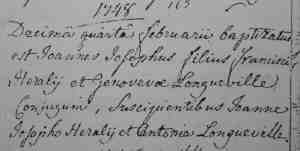 1748
Decima quarta februarii baptizatus
est Joannes Josephus filius francisci
Heralij et Genovevæ Longueville
Conjugum, Suscipientibus Joanne
Josepho Heralij et Antonia Longueville.